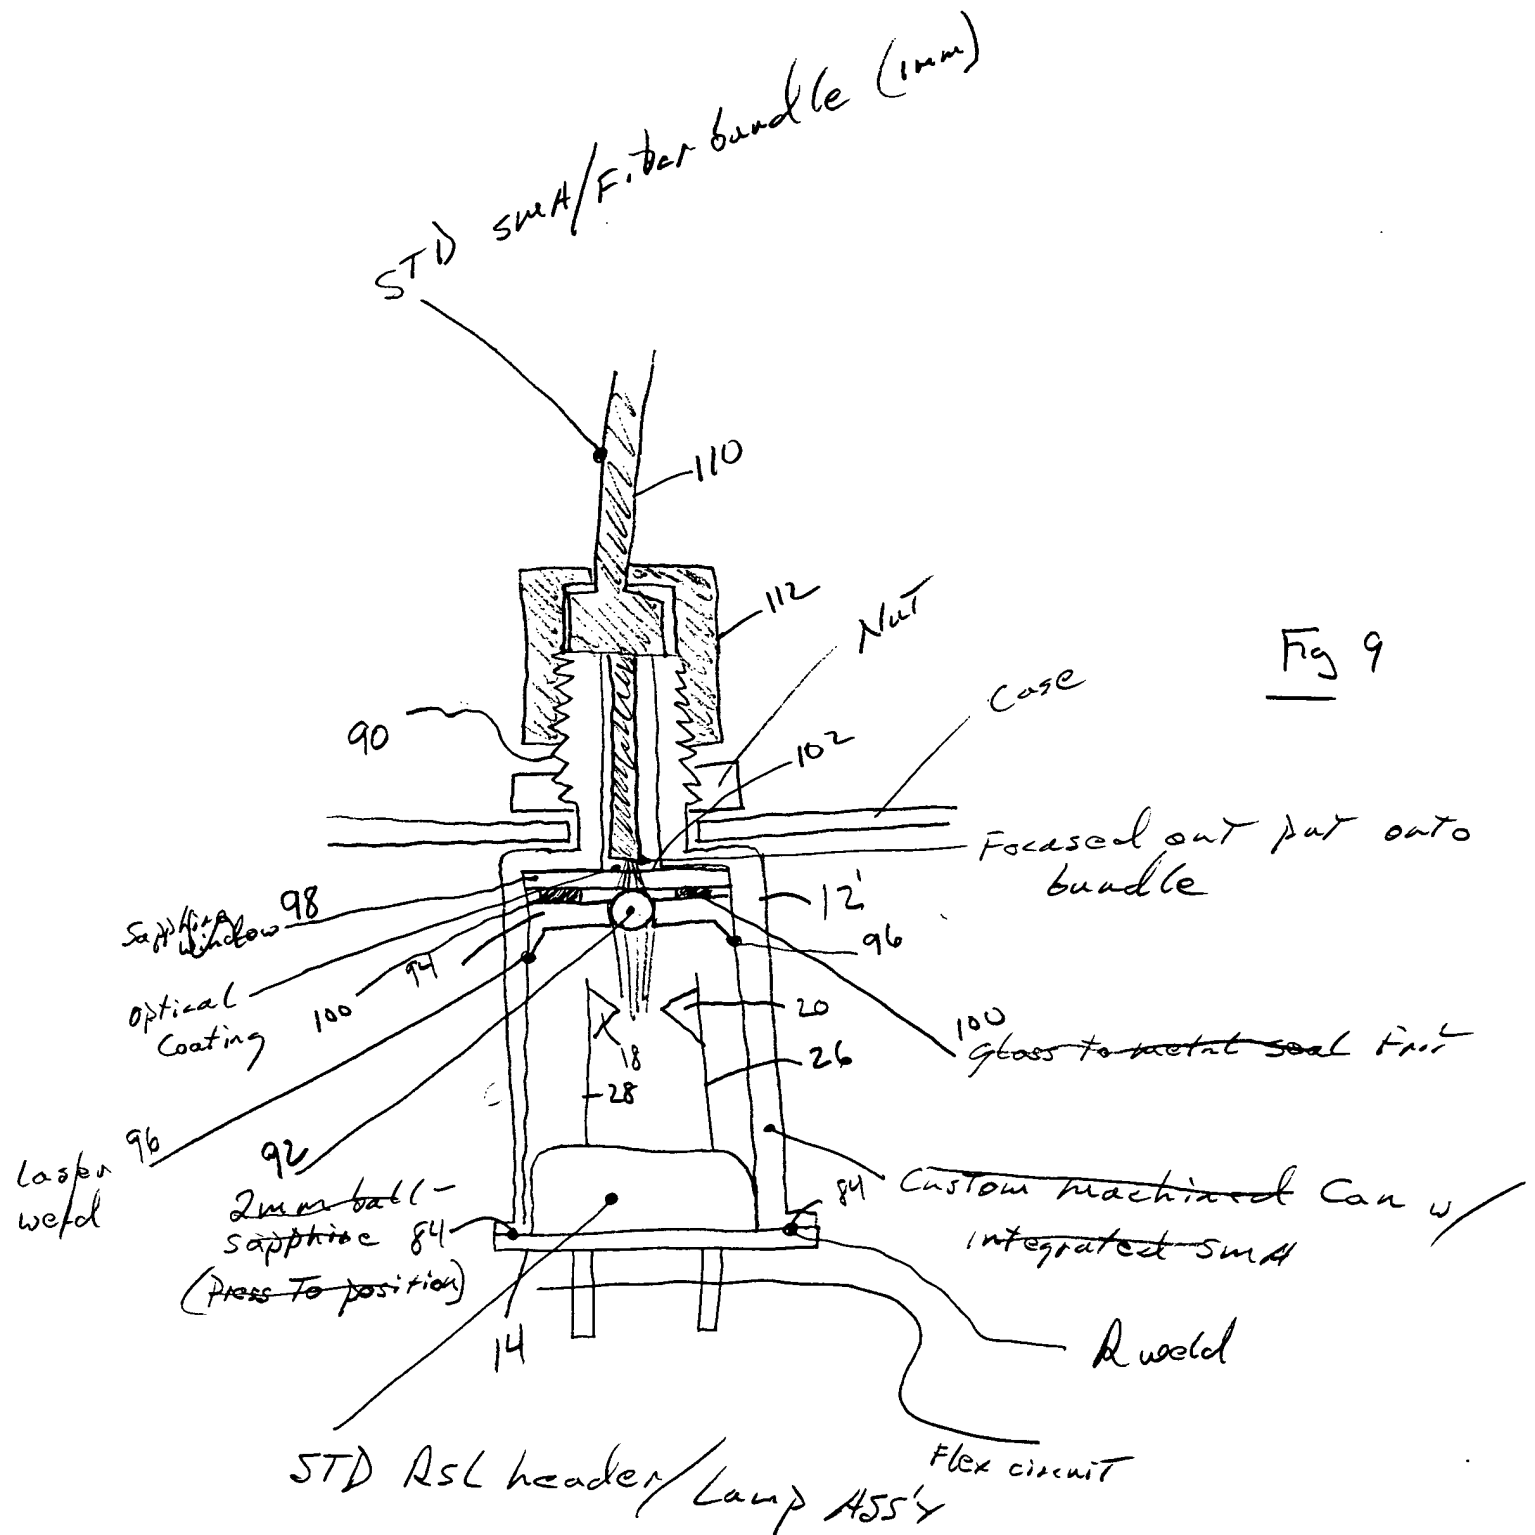 STD SMA/Fiber bundle (1mm)
110
112
Nut
Fig 9
Case
90
102
Focused out put onto
bundle
98
Sapphire
window
12'
96
94
optical
coating
100
20
18
100
Glass to metal seal
26
28
96
Laser
weld
92
2mm ball-
sapphire
(Press To position)
84
84
Custom machined Can w/
integrated SMA
14
R weld
Flex circuit
STD RSL header/Lamp Ass'y